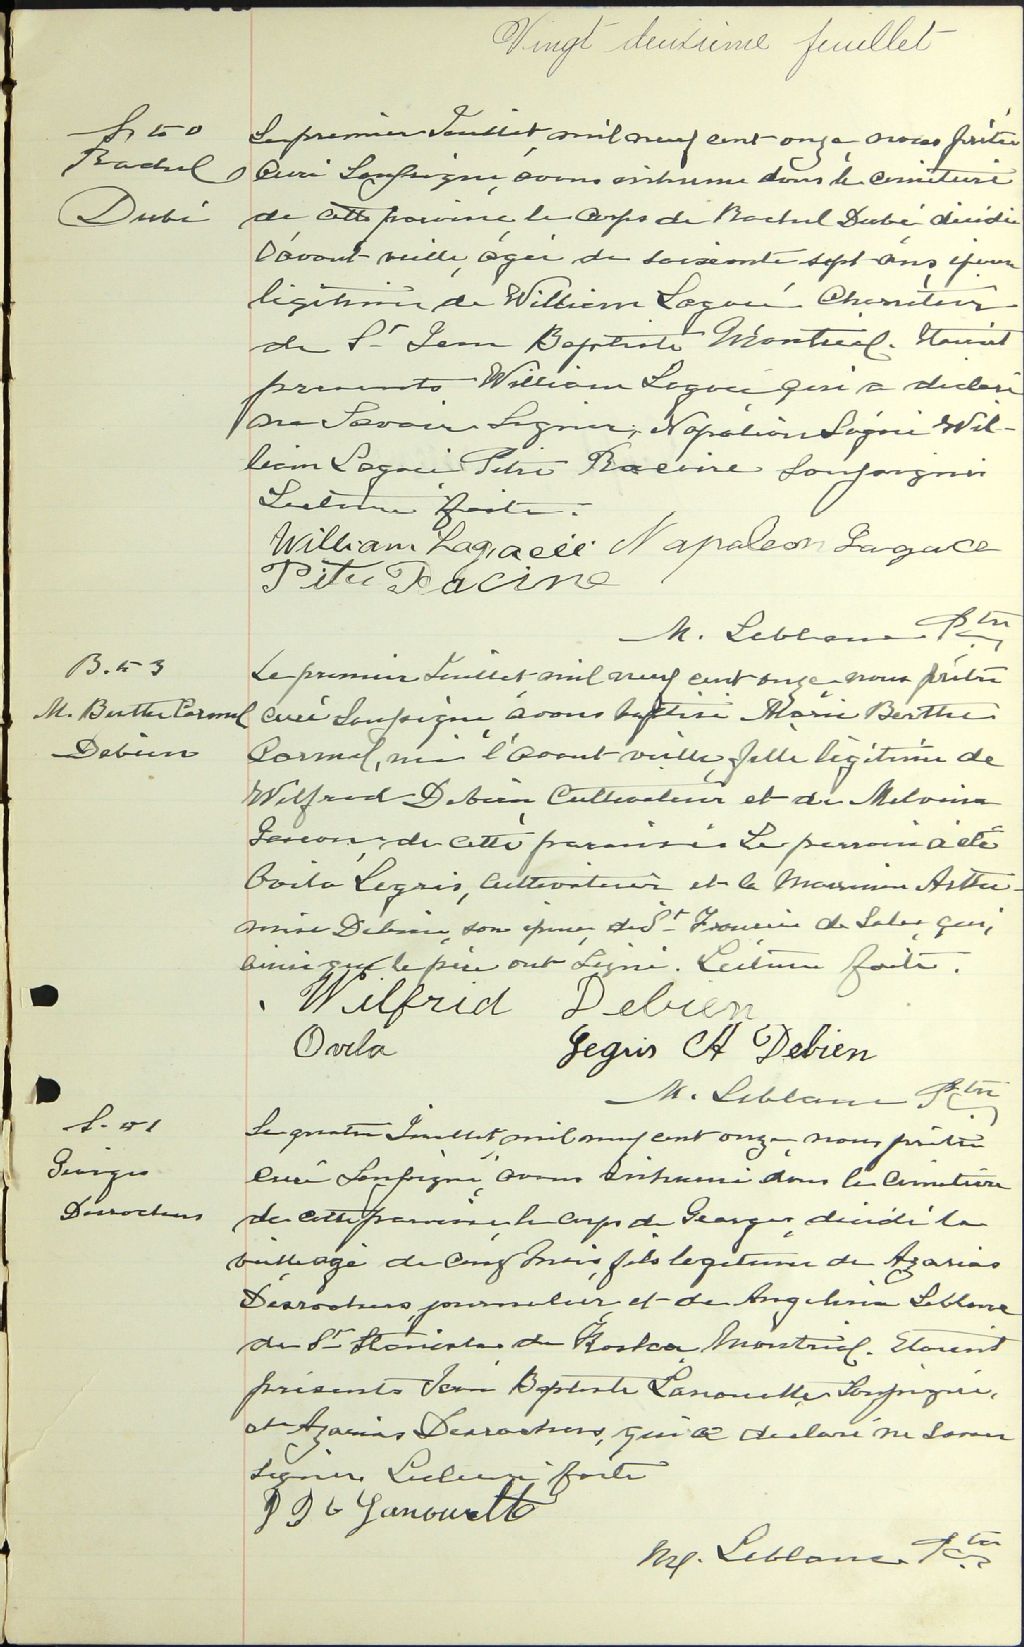 Vingt deuxième feuillet
S. 50
Rachel
Dubé
Le premier Juillet mil neuf cent onze nous prêtre
curé soussigné, avons inhumé dans le cimetière
de cette paroisse, le corps de Rachel Dubé décédée
l'avant veille, agée de soixante sept ans, épouse
légitime de William Lagacé Charretier
de St Jean Baptiste Montréal. Etaient
présents William Lagacé qui a déclaré
ne savoir signer, Napoléon Lagacé Wil-
liam Lagacé Pitre Racine soussignés
Lecture faite.
William Lagacéé Napoleon Lagace
Pitre Racine
M. Leblanc Ptre
B. 53
M. Berthe Carmel
Debien
Le premier Juillet mil neuf cent onze nous prêtre
curé soussigné avons baptisé Marie Berthe
Carmel, née l'avant veille, fille légitime de
Wilfred Debien Cultivateur et de Melvina
de cette paroisse Le parrain a été
Ovila Legris, Cultivateur et la Marraine Arthé-
mise Debien, son épouse, de St François de Sales, qui,
ainsi que le père ont signé. Lecture faite.
Wilfrid Debien
Ovila Legris A Debien
M. Leblanc Ptre
S. 51
Georges
Desrochers
Le quatre Juillet, mil neuf cent onze nous prêtre
curé soussigné, avons inhumé dans le cimetière
de cette paroisse, le corps de Georges, décédé la
veille agé de cinq mois, fils légitime de Azarias
Desrochers, journalier, et de Angelina Leblanc
de St Stanislas de Kostka Montréal. Etaient
présents Jean Baptiste Lanouette, soussigné,
et Azarias Desrochers, qui a déclaré ne savoir
signer. Lecture faite
J B Lanouette
M. Leblanc Ptre